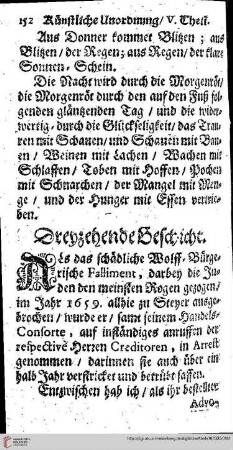 152 Künstliche Unordnung/ V. Theil.
Aus Donner kommet Blitzen; aus
Blitzen/ der Regen; aus Regen/ der klare
Sonnen-Schein.
Die Nacht wird durch die Morgenröt/
die Morgenröt durch den auf den Fuß fol-
genden gläntzenden Tag/ und die wider-
wertig-durch die Glückseligkeit/ das Trau-
ren mit Schauen/ und Schauen mit Bau-
en/ Weinen mit Lachen/ Wachen mit
Schlaffen/ Toben mit Hoffen/ Pochen
mit Schnarchen/ der Mangel mit Men-
ge/ und der Hunger mit Essen vertrie-
ben.
Dreyzehende Geschicht.
Als das schädliche Wolff-Bürge-
rische Falliment, darbey die Ju-
den den meinsten Rogen gezogen/
im Jahr 1659. allhie zu Steyer ausge-
brochen/ wurde er/ samt seinem Handels-
Consorte, auf inständiges anruffen der
respectivè Herren Creditoren, in Arrest
genommen/ darinnen sie auch über ein
halb Jahr verstricket und betrübt sassen.
Entzwischen hab ich/ als ihr bestellter
Advo-